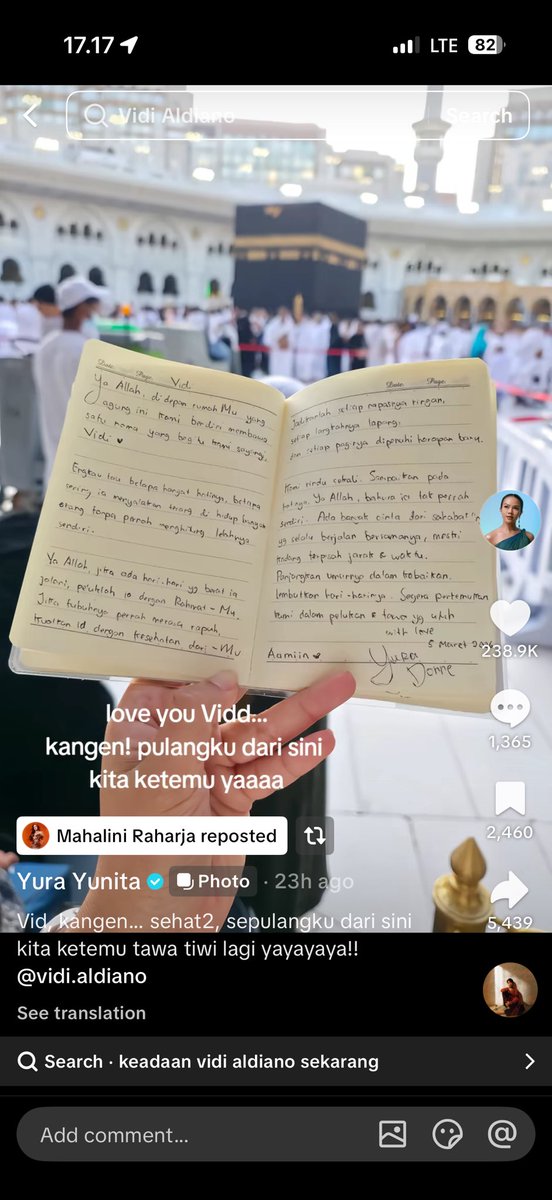 17.17
LTE
82
Vidi Aldiano
Search
Date. Page.
Vidi
Ya Allah, di depan rumah Mu yang
agung ini kami berdiri membawa
satu nama yang begitu kami sayangi,
Vidi
Engkau tau betapa hangat hatinya, betapa
sering ia menyalakan terang di hidup banyak
orang tanpa pernah menghitung lelahnya
sendiri.
Ya Allah, jika ada hari-hari yg berat ia
jalani, peluklah ia dengan Rahmat-Mu.
Jika tubuhnya pernah merasa rapuh,
kuatkan ia dengan kesehatan dari-Mu
Date. Page.
Jadikanlah setiap napasnya ringan,
setiap langkahnya lapang,
dan setiap paginya dipenuhi harapan baru.
Kami rindu sekali. Sampaikan pada
hatinya, Ya Allah, bahwa ia tak pernah
sendiri. Ada banyak cinta dari sahabat
yg selalu berjalan bersamanya, meski
kadang terpisah jarak & waktu.
Panjangkan umurnya dalam kebaikan.
Lembutkan hari-harinya. Segera pertemukan
kami dalam pelukan & tawa yg utuh
with love
5 Maret
Aamiin
Yura
Donne
238.9K
1,365
2,460
5,439
love you Vidd...
kangen! pulangku dari sini
kita ketemu yaaaa
Mahalini Raharja reposted
Yura Yunita Photo · 23h ago
Vid, kangen... sehat2, sepulangku dari sini
kita ketemu tawa tiwi lagi yayayaya!!
@vidi.aldiano
See translation
Search · keadaan vidi aldiano sekarang
Add comment...